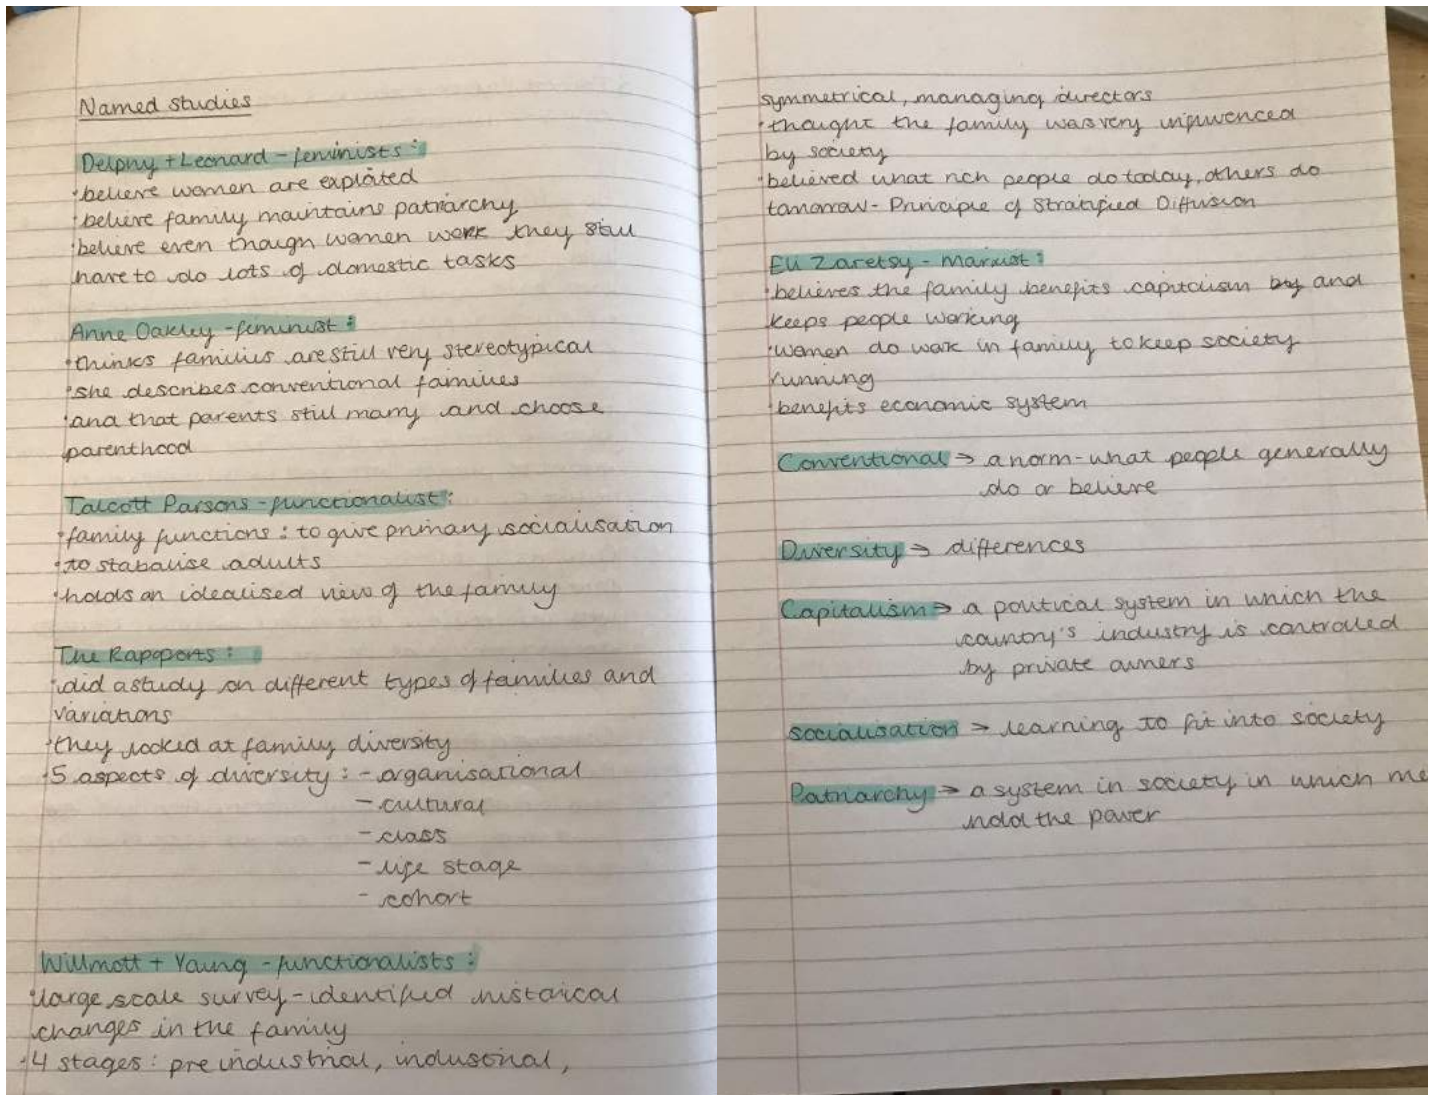 Named studies
Delphy + Leonard - feminists:
·believe women are exploited
·believe family maintains patriarchy
·believe even though women work they still
have to do lots of domestic tasks
Anne Oakley - feminist:
·thinks families are still very stereotypical
·she describes conventional families
·and that parents still marry and choose
parenthood
Talcott Parsons - functionalist:
·family functions: to give primary socialisation
·to stabalise adults
·holds an idealised view of the family
The Rapoports:
·did a study on different types of families and
variations
·they looked at family diversity
·5 aspects of diversity: - organisational
- cultural
- class
- life stage
- cohort
Willmott + Young - functionalists:
·large scale survey - identified historical
changes in the family
·4 stages: pre industrial, industrial,
symmetrical, managing directors
·thought the family was very influenced
by society
·believed what rich people do today, others do
tomorrow - Principle of Stratified Diffusion
Eli Zaretsy - Marxist:
·believes the family benefits capitalism by and
keeps people working
·women do work in family to keep society
running
·benefits economic system
Conventional → a norm - what people generally
do or believe
Diversity → differences
Capitalism → a political system in which the
country's industry is controlled
by private owners
Socialisation → learning to fit into society
Patriarchy → a system in society in which me
hold the power